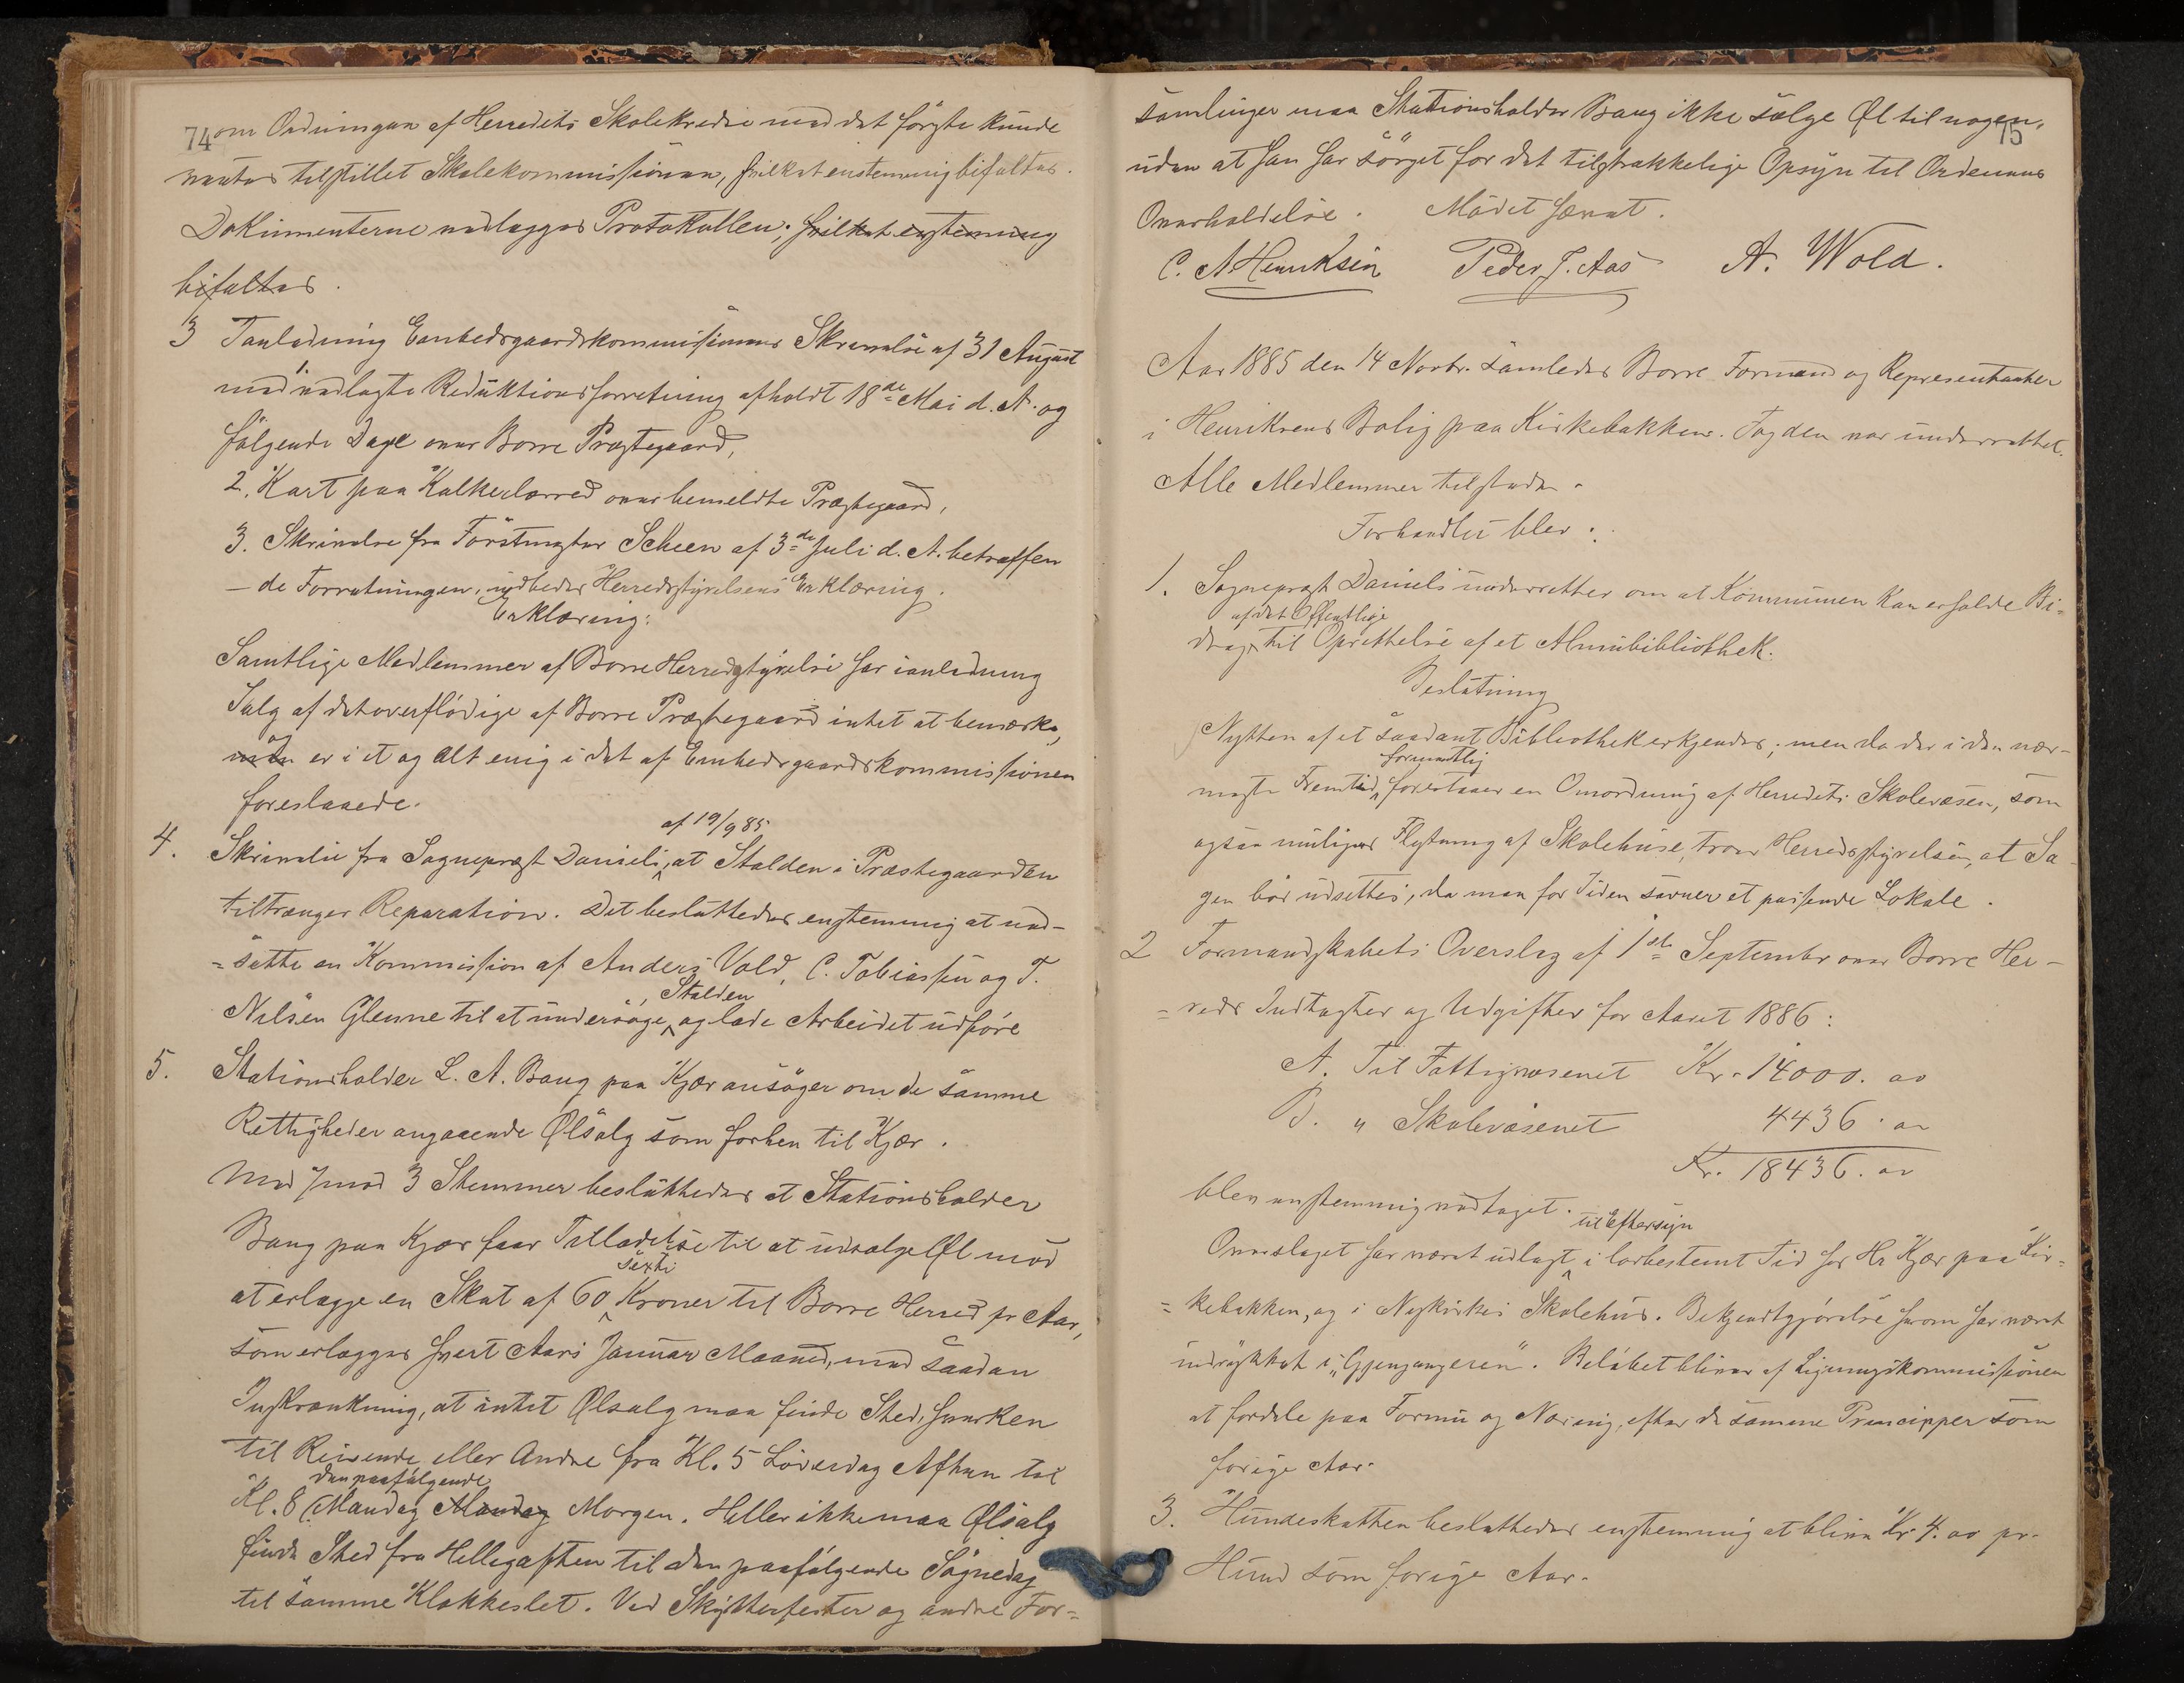 74
om Ordningen af Herredets Skolekredse med det første kunde
ventes tilstillet Skolekommissionen, hvilket enstemmig bifaltes.
Dokumenterne vedlægges Protokollen; hvilket enstemmig
bifaltes.
3 Ianledning Embedsgaardskommissionens Skrivelse af 31 August
med 1. vedlagte Reduktionsforretning afholdt 18de Mai d. A. og
følgende Dage over Borre Præstegaard,
2. Kart paa Kalkerlærred over bemeldte Præstegaard,
3. Skrivelse fra Forstmester Scheen af 3de Juli d. A. betræffen
-de Forretningen, indhedes Herredsstyrelsens Erklæring.
Erklæring:
Samtlige Medlemmer af Borre Herredsstyrelse har ianledning
Salg af det overflødige af Borre Præstegaard intet at bemærke,
og
men er i et og alt enig i det af Embedsgaardskommissionen
foreslaaede.
af 19/9 85
4. Skrivelse fra Sogneprest Daniels, at Stalden i Præstegaarden
tiltrænger Reparation. Det besluttedes enstemmig at ned-
=sette en Kommission af Anders Vold, C. Tobiassen og T.
Stalden
Nilsen Glenne til at undersøge, og lade Arbeidet udføre
5. Stationsholder L. A. Bang paa Kjær ansøger om de samme
Rettigheder angaaende Ølsalg som forhen til Kjær.
Med 7 mod 3 Stemmer besluttedes at Stationsholder
Bang paa Kjær faar Tilladelse til at udsælge Øl mod
sexti
at erlægge en Skat af 60 Kroner til Borre Herred pr Aar,
som erlægges hvert Aars Januar Maaned, med saadan
Inskrænkning, at intet Ølsalg maa finde Sted, hverken
til Reisende eller Andre fra Kl. 5 Løverdag Aften til
den paafølgende
Kl. 8 Mandag Mandag Morgen. Heller ikke maa Ølsalg
finde Sted fra Helligaften til den paafølgende Søgnedag
til samme Klokkeslet. Ved Skytterfester og andre For=
75
samlinger maa Stationsholder Bang ikke sælge Øl til nogen,
uden at han har sørget for det tilstrækkelige Opsyn til Ordenens
Overholdelse. Mødet hævet.
C. A Henriksen Peder J. Aas A. Wold.
Aar 1885 den 14 Novbr. samledes Borre Formænd og Repræsentanter
i Henriksens Bolig paa Kirkebakken. Fogden var underrettet.
Alle Medlemmer tilstede.
Forhandlet blev:
1. Sogneprest Daniels underretter om at Kommunen kan erholde Bi=
af det Offentlige
drag til Oprettelse af et Almubibliothek.
Beslutning
Nytten af et saadant Bibliothek erkjendes; men da der i den nær-
formentlig
meste Fremtid forestaaer en Omordning af Herredets Skolevæsen, som
ogsaa muligens Flytning af Skolehuse, troer Herredsstyrelsen, at Sa
gen bør udsettes, da man for Tiden savner et passende Lokale.
2 Formandskabets Overslag af 1ste September over Borre Her-
=reds Indtægter og Udgifter for Aaret 1886:
A. Til Fattigvæsenet Kr. 14000. 00
B. " Skolevæsenet 4436. 00
Kr. 18436. 00
blev enstemmig vedtaget.
til Eftersyn
Overslaget har været udlagt i lovbestemt Tid hos Hr Kjær paa Kir=
=kebakken, og i Nykirkes Skolehus. Bekjendtgjørelse herom har været
indrykket i „Gjengangeren". Beløbet bliver af Ligningskommissionen
at fordele paa Formue og Næring, efter de samme Principper som
forige Aar.
3. Hundeskatten besluttedes enstemmig at blive Kr 4. 00 pr.
Hund som forige Aar.